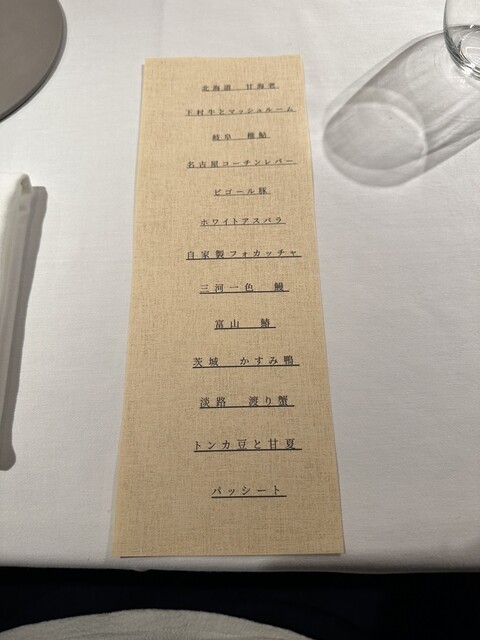 北海道　甘海老
下村牛とマッシュルーム
岐阜　稚鮎
名古屋コーチンレバー
ビゴール豚
ホワイトアスパラ
自家製フォカッチャ
三河一色　鰻
富山　鰆
茨城　かすみ鴨
淡路　渡り蟹
トンカ豆と甘夏
パッシート